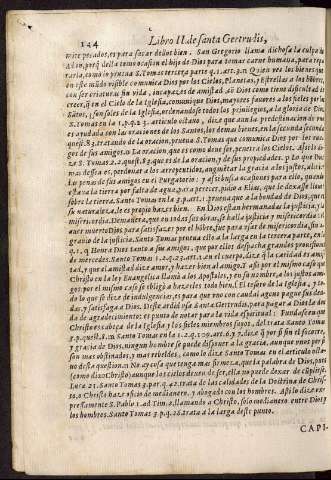 144 Libro II. de santa Gertrudis,
los pecados, es para sacar dellos bien. San Gregorio llama dichosa la culpa
Adan, porq̃ della tomo ocasion el hijo de Dios para tomar carne humana, para repa
rarla, como lo prueua S. Tomas tercera parte q. 1. art. 3. Quien vee los bienes que
en este mũdo visible comunica Dios por los Cielos, Planetas, y Estrellas a los hõbres,
con ser criaturas sin vida, incapazes de amistad
creer, q̃ en el Cielo de la Iglesia, comunique Dios, mayores fauores a los fieles por los
Sãtos, que son soles de la Iglesia, ordenandolo todo
S. Tomas en la 1. p. q. 23. articulo octauo, dize que aun la predestinacion
es ayudada con las oraciones de los Santos, los demas bienes, en la segunda secunda,
quest. 83. tratando de la oracion, prueua S. Tomas que comunica Dios por
gos de sus amigos. La oracion, que es como llaue, penetra los Cielos.
ze S. Tomas 2. 2. quest. 83. que es de la oracion, y de sus propiedades. Lo que Dios
mas dessea es, perdonar a los arrepentidos, augmẽtar la gracia a los justos, abreuiar
las penas de sus amigos en el Purgatorio
esta ya la tierra por falta de agua, para perecer, pidio a Elias, que le dexasse llouer
sobre la tierra. Santo Tomas en la 3. p. art. 1. prueua que a la bondad de Dios, por
su naturaleza, le es propio hazer bien. En Dios estan hermanadas la justicia, y la
misericordia. Demanera, que en todas sus obras, se halla justicia y misericordia
auer muerto Dios para satisfazer por el hõbre, fue para vsar de misericordia, sin
grauio de la justicia, Santo Tomas prueua esto a la larga en la tercera parte,
q. 1. Honra Dios tanto a sus amigos, que por ellos despacha grandes prouisiones
de mercedes. Santo Tomas 1. 2. q. 23. art. 1. en el cuerpo, dize q̃ la caridad es amis
tad, y que al amistad dize amor, y hazer bien al amigo. Y assi por el mismo caso que
Christo en la ley Euangelica llamò a los Apostoles, y en su nombre, a los justos ami
gos: por el mismo caso se obligò a hazerles todo bien. El tesoro de la Iglesia, y
do lo que se dize de indulgencias, es para que vno con caudal ageno pague sus deu
das, y satisfaga a Dios. Deste ardid vsa santa Gertrudis, para pagar a Dios la deu
da de agradecimiento: es punto de notar para la vida espiritual: Fundase en que
Christo es cabeça de la Iglesia y los fieles miembros suyos, del trata Santo Tomas
3. p. quest. 8. Santo Tomas en la 1. 2. q. 109. art. 6. y 7. dize q̃ por si sin el fauor,
y gracia de Dios, ningun hombre se puede disponer a la gracia, aunque vnos pechos
son mas obstinados, y mas rebeldes, como lo dize Santo Tomas en el articulo octa
uo desta question. No ay cosa que tenga mas firmeza, que la palabra de Dios, pues
(como dixo Christo) aunque los cielos dexen de ser, ella no puede dexar de cũplirse.
Lucæ 21. Santo Tomas 3. par. q. 42. trata de las calidades de la Doctrina de Chris
to. Christo haze oficio de medianero, y abogado con los hombres. Assi lo dize ex
pressamente S. Pablo 1. ad Tim. 2. llamando a Christo, solo medianero entre Dios y
los hombres. Santo Tomas 3. p. q. 26. trata a la larga deste punto.
CAPI-